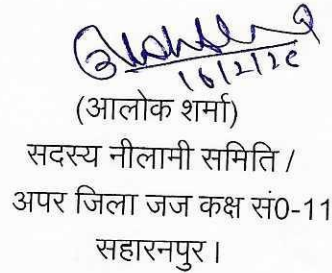 16/2/26
(आलोक शर्मा)
सदस्य नीलामी समिति /
अपर जिला जज कक्ष सं0-11
सहारनपुर।